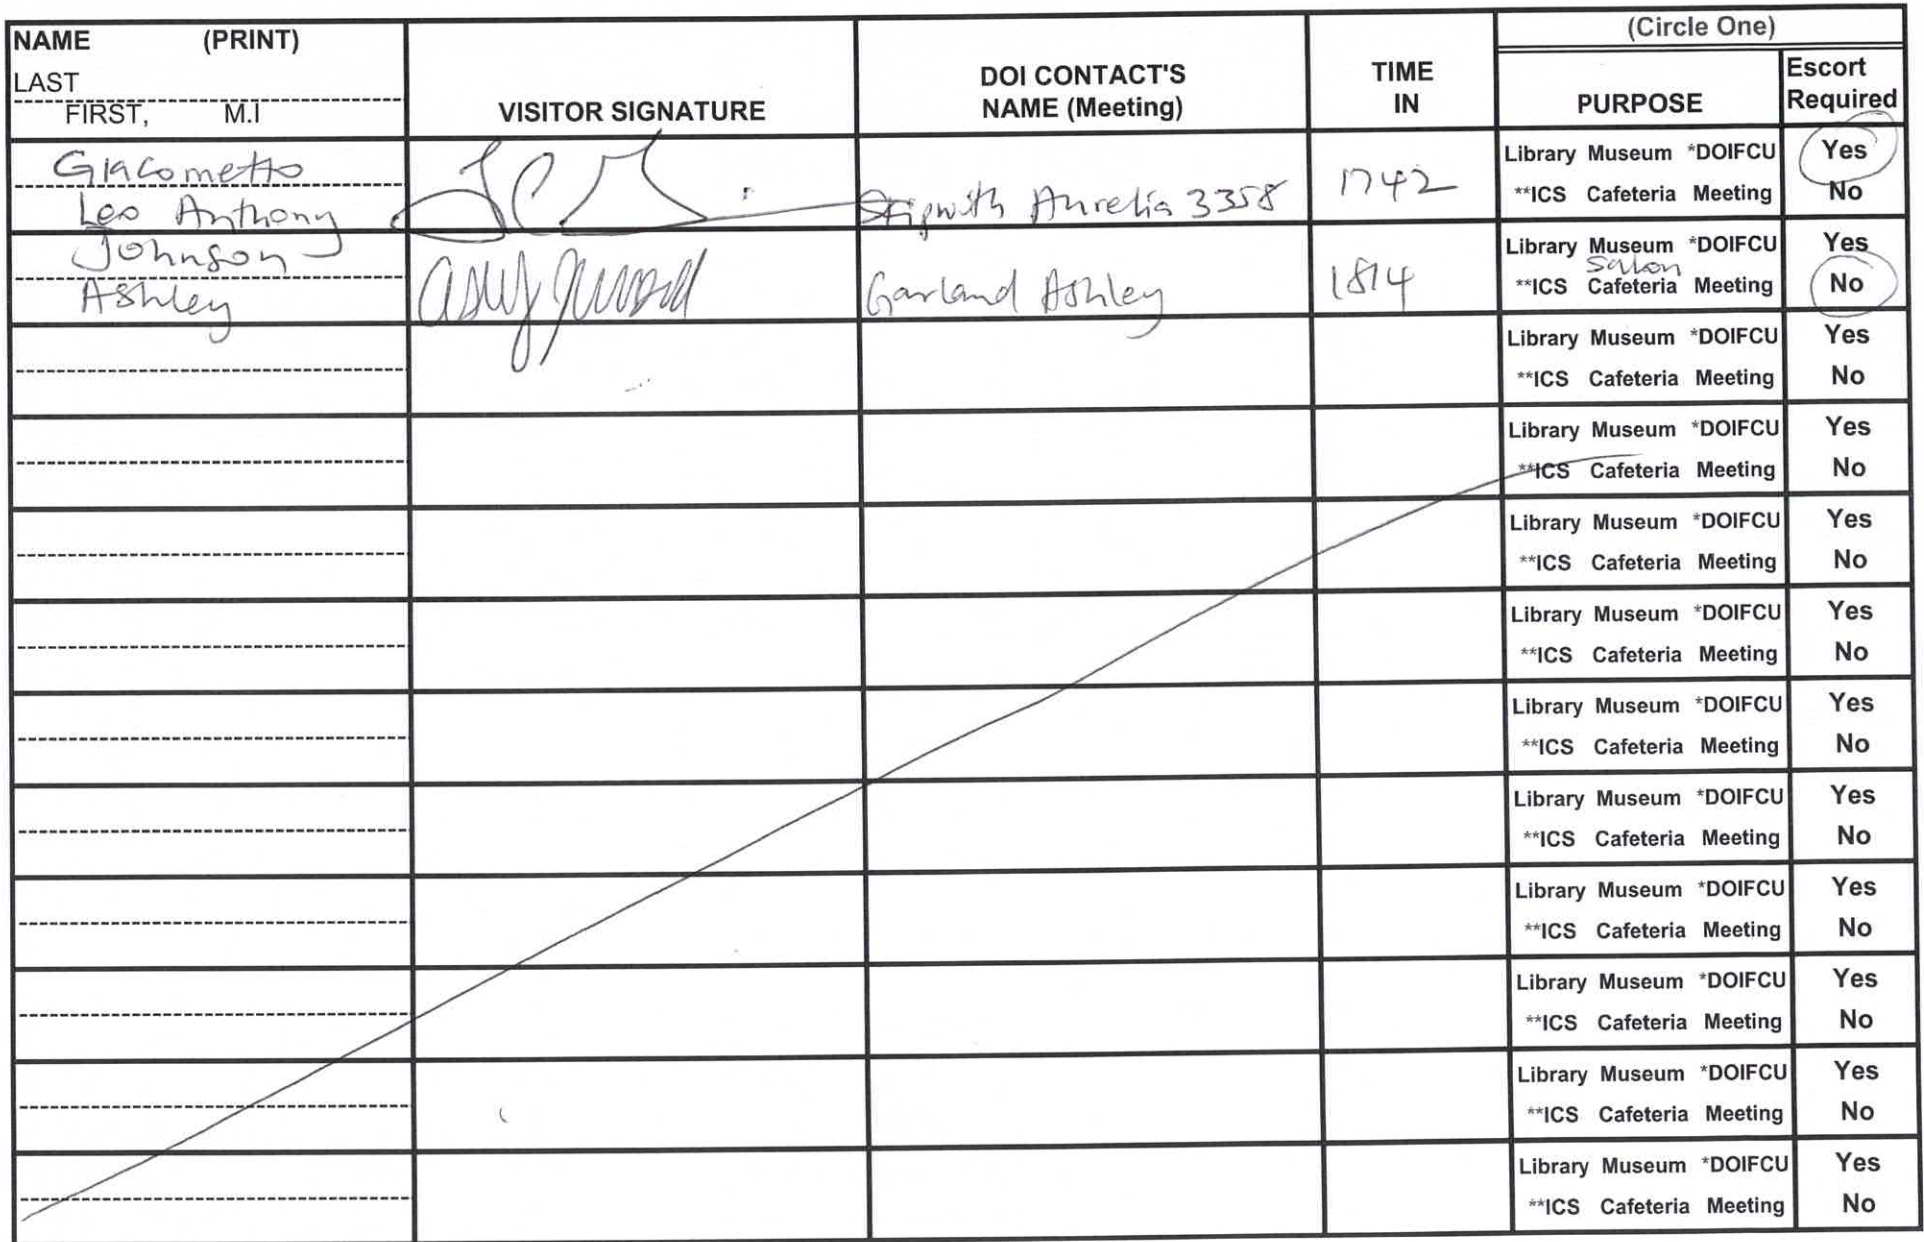 NAME (PRINT)
LAST
FIRST, M.I
VISITOR SIGNATURE
DOI CONTACT'S
NAME (Meeting)
TIME
IN
(Circle One)
PURPOSE
Escort
Required
Giacometto
Leo Anthony
Aurelia 3358
1742
Library Museum *DOIFCU Yes
**ICS Cafeteria Meeting No
Johnson
Ashley
Garland Ashley
1814
Library Museum *DOIFCU Yes
Salon
**ICS Cafeteria Meeting No
Library Museum *DOIFCU Yes
**ICS Cafeteria Meeting No
Library Museum *DOIFCU Yes
**ICS Cafeteria Meeting No
Library Museum *DOIFCU Yes
**ICS Cafeteria Meeting No
Library Museum *DOIFCU Yes
**ICS Cafeteria Meeting No
Library Museum *DOIFCU Yes
**ICS Cafeteria Meeting No
Library Museum *DOIFCU Yes
**ICS Cafeteria Meeting No
Library Museum *DOIFCU Yes
**ICS Cafeteria Meeting No
Library Museum *DOIFCU Yes
**ICS Cafeteria Meeting No
Library Museum *DOIFCU Yes
**ICS Cafeteria Meeting No
Library Museum *DOIFCU Yes
**ICS Cafeteria Meeting No